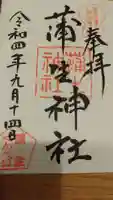 奉拝
蒲生神社
令和四年九月十四日